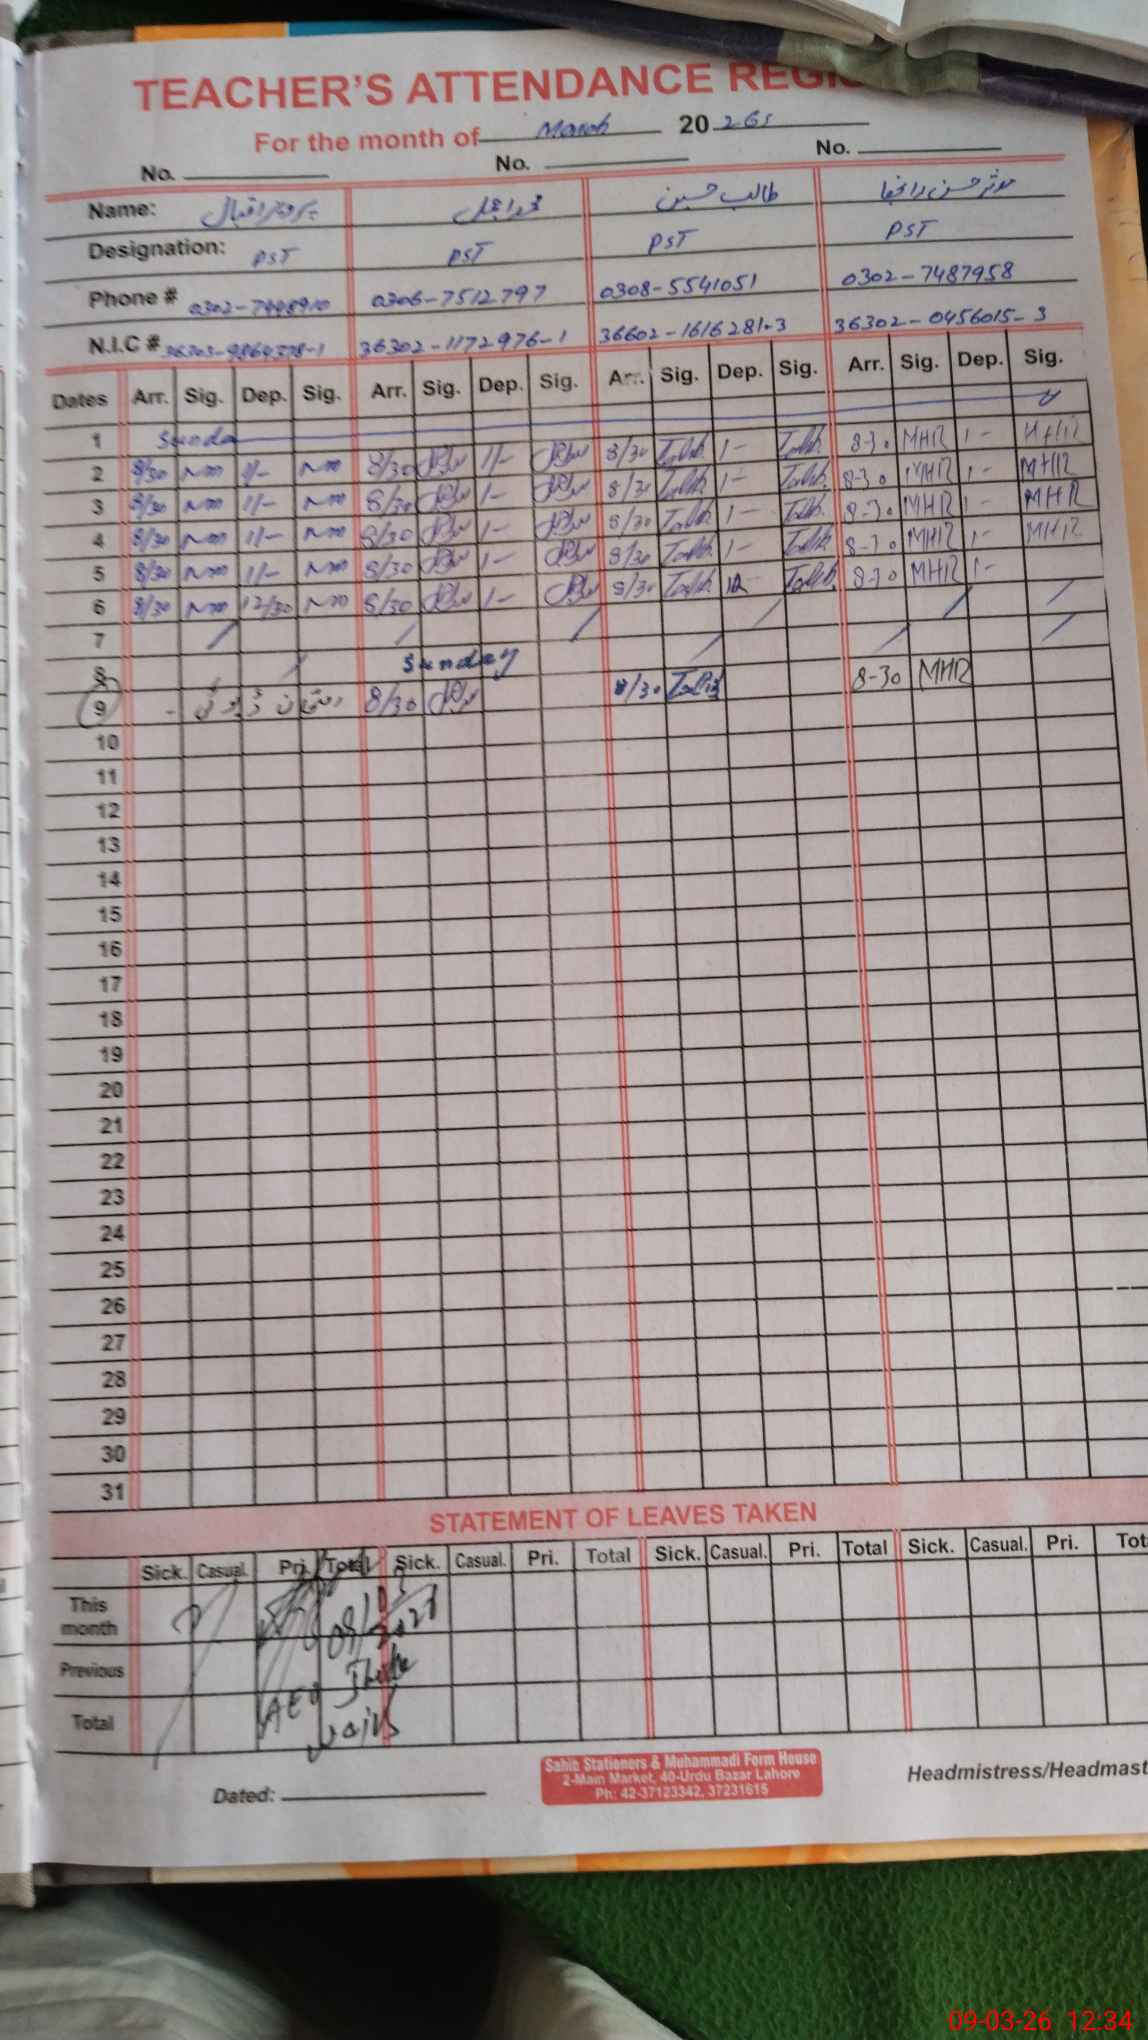 TEACHER'S ATTENDANCE REGIS
For the month of March 20 26
No. No. No.
Name: پرویز اقبال طالب حسین مدثر حسن رانجھا
Designation: PST PST PST PST
Phone # 0302-7448910 0306-7512797 0308-5541051 0302-7487958
N.I.C # 36303-9864378-1 36302-1172976-1 36602-1616281-3 36302-0456015-3
Dates Arr. Sig. Dep. Sig. Arr. Sig. Dep. Sig. Arr. Sig. Dep. Sig. Arr. Sig. Dep. Sig.
1 Sunday
2 8/30 1/- 8/30 1/- 8/30 Talib 1- Talib 8-30 MHR 1- MHR
3 8/30 1/- 8/30 1- 8/30 Talib 1- Talib 8-30 MHR 1- MHR
4 8/30 1/- 8/30 1- 8/30 Talib 1- Talib 8-30 MHR 1- MHR
5 8/30 1/- 8/30 1- 8/30 Talib 1- Talib 8-30 MHR 1- MHR
6 8/30 12/30 8/30 1- 8/30 Talib 12- Talib 8-30 MHR 1-
7
8 Sunday
9 8/30 8/30 Talib 8-30 MHR
10
11
12
13
14
15
16
17
18
19
20
21
22
23
24
25
26
27
28
29
30
31
STATEMENT OF LEAVES TAKEN
Sick. Casual. Pri. Total Sick. Casual. Pri. Total Sick. Casual. Pri. Total Sick. Casual. Pri. Tot
This month
Previous
Total
AEO
Dated:
Sahib Stationers & Muhammadi Form House
2-Main Market, 40-Urdu Bazar Lahore
Ph: 42-37123342, 37231615
Headmistress/Headmast
09-03-26 12:34